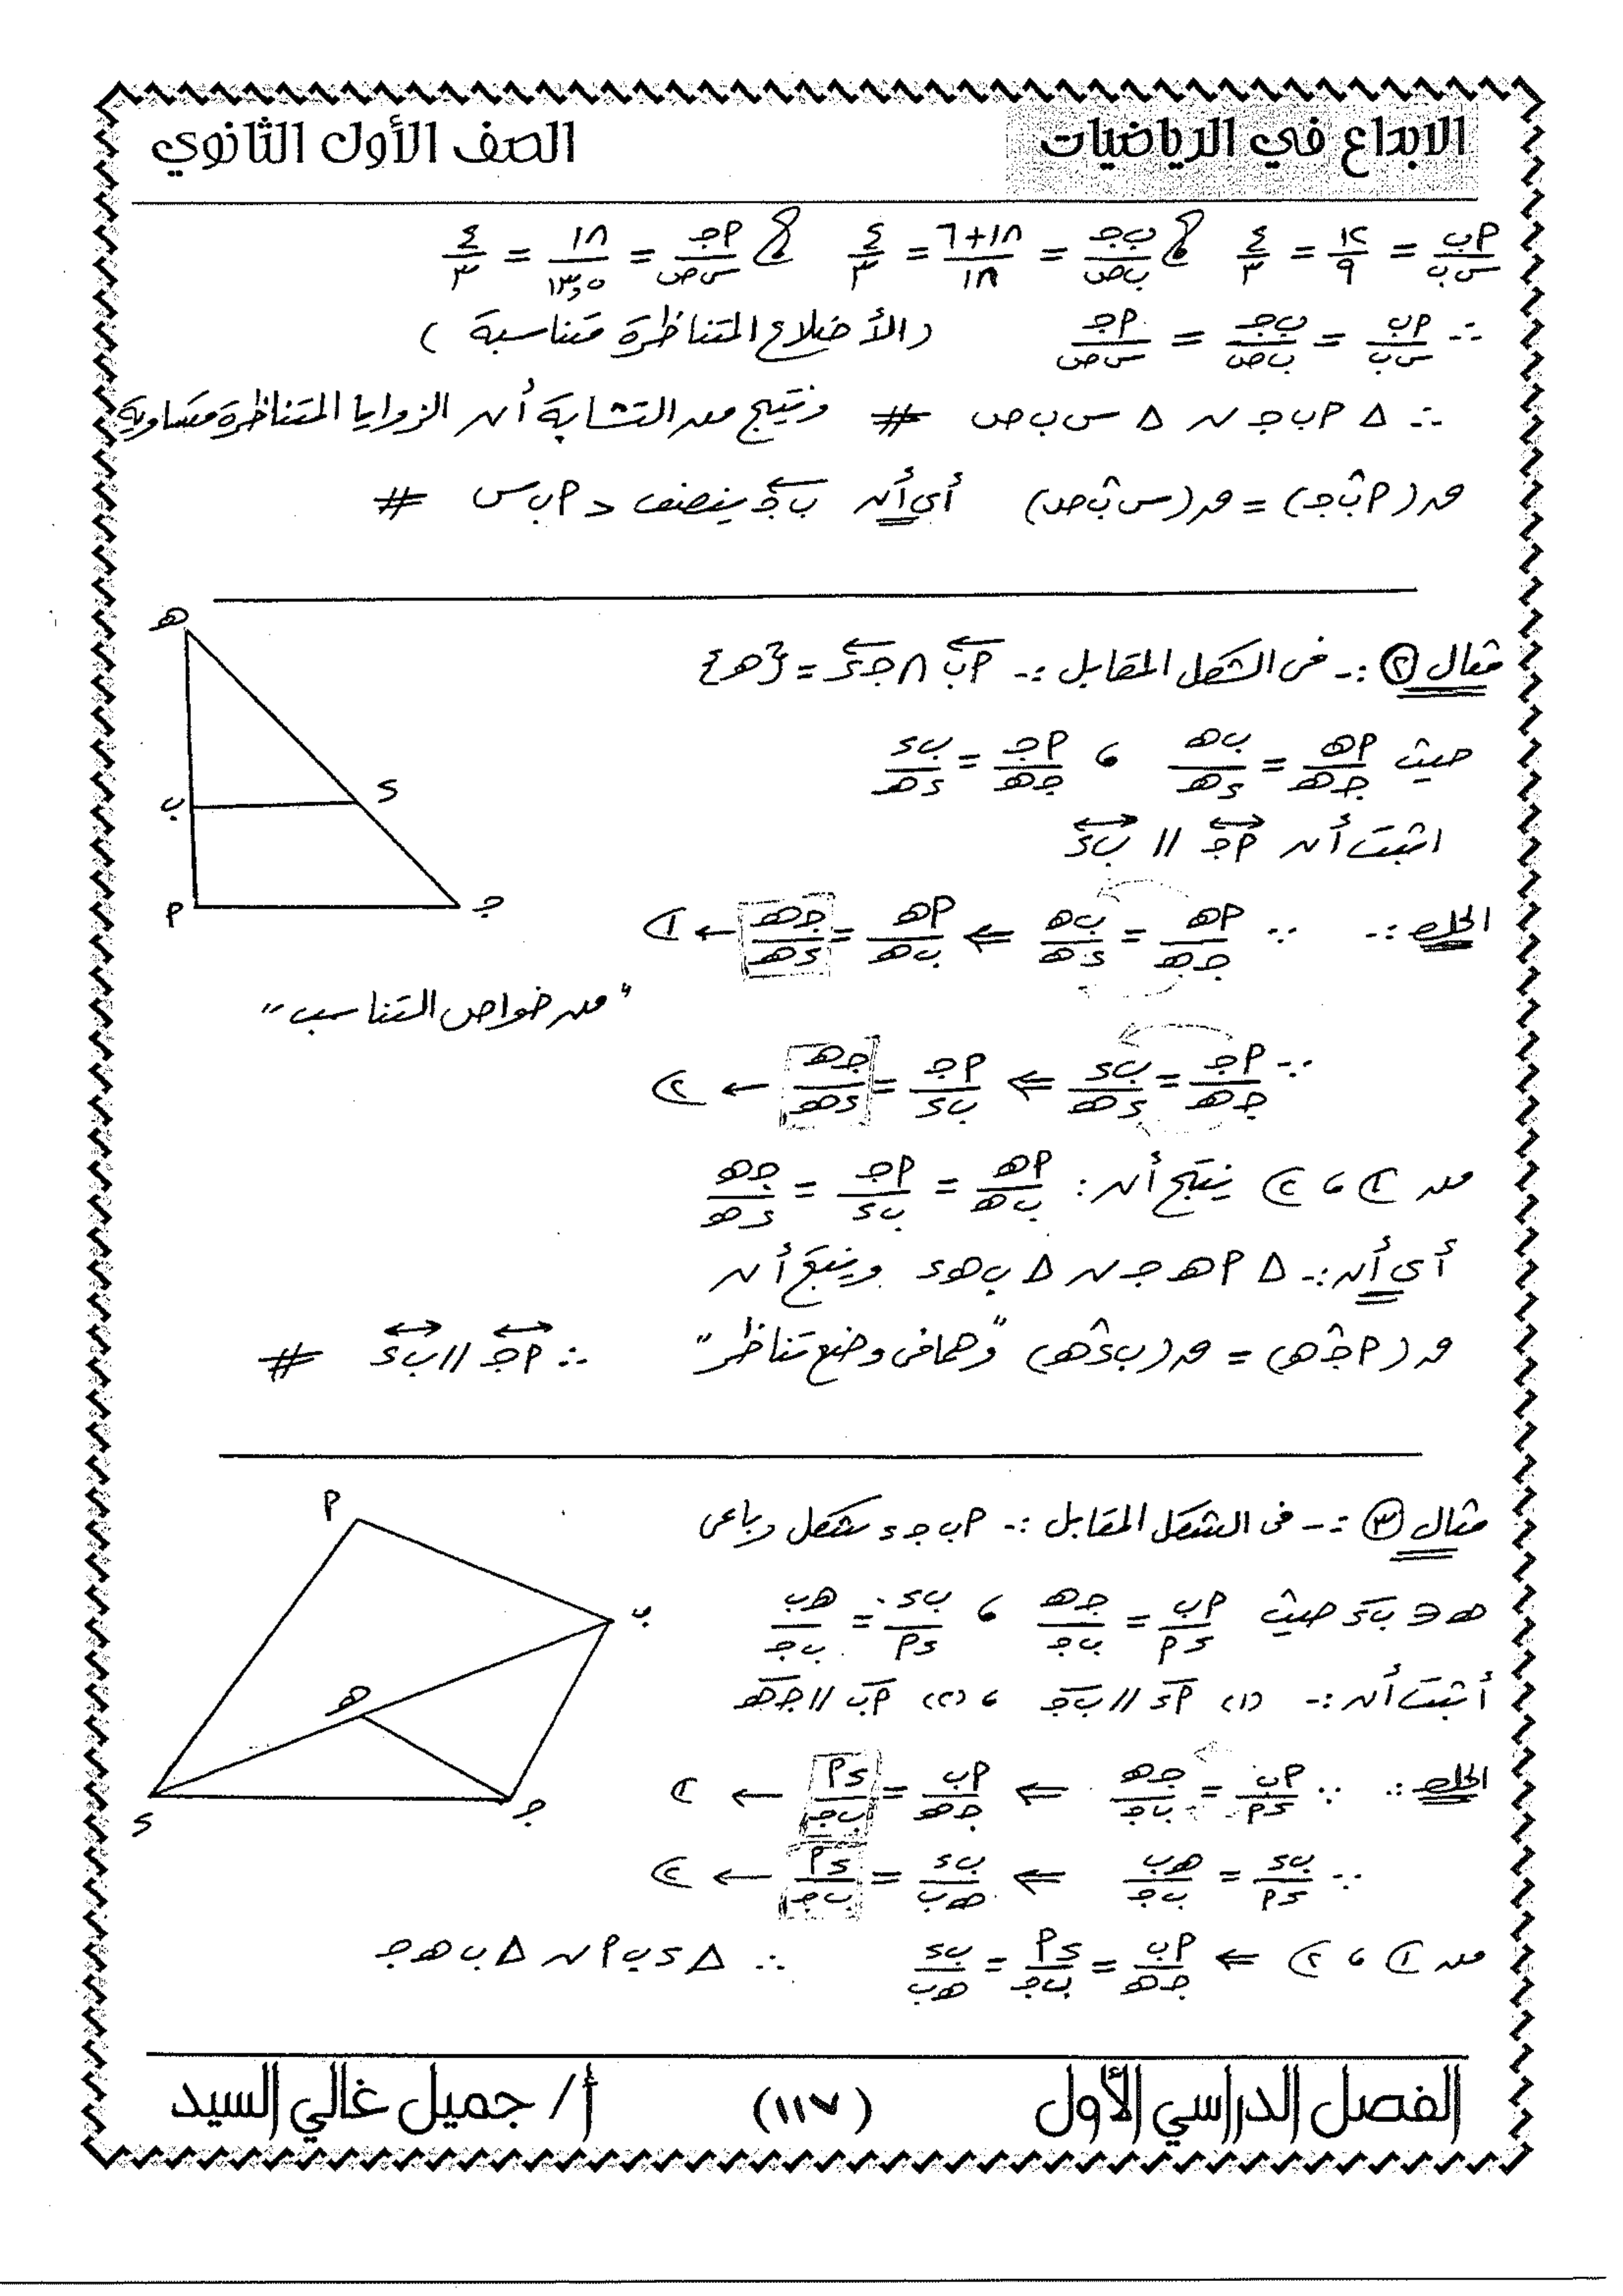 الابداع في الرياضيات
الصف الأول الثانوي
أب/س ب = ١٢/٩ = ٤/٣ ، ب ج/ب ص = (١٨+٦)/١٨ = ٤/٣ ، أ ج/س ص = ١٨/١٣,٥ = ٤/٣
∴ أب/س ب = ب ج/ب ص = أ ج/س ص (الأضلاع المتناظرة متناسبة)
∴ Δ أ ب ج ~ Δ س ب ص # وينتج من التشابه أن الزوايا المتناظرة متساوية
ق(أ ب̂ ج) = ق(س ب̂ ص) أي أن ب ج ينصف < أ ب س #
مثال (٢) :- فى الشكل المقابل :- أب ∩ ج د = {هـ}
حيث أهـ/ج هـ = ب هـ/د هـ ، أ ج/ج هـ = ب د/د هـ
اثبت أن أ ج // ب د
الحل :- ∵ أهـ/ج هـ = ب هـ/د هـ ⇐ أهـ/ب هـ = ج هـ/د هـ ← ١
"من خواص التناسب"
∵ أ ج/ج هـ = ب د/د هـ ⇐ أ ج/ب د = ج هـ/د هـ ← ٢
من ١ ، ٢ ينتج أن : أهـ/ب هـ = أ ج/ب د = ج هـ/د هـ
أي أن :- Δ أ هـ ج ~ Δ ب هـ د وينتج أن
ق(أ ج̂ هـ) = ق(ب د̂ هـ) "وهما فى وضع تناظر" ∴ أ ج // ب د #
مثال (٣) :- فى الشكل المقابل :- أ ب ج د شكل رباعى
هـ ∈ ب د حيث أب/د أ = ج هـ/ب ج ، ب د/د أ = هـ ب/ب ج
أثبت أن :- (١) أ د // ب ج ، (٢) أ ب // ج هـ
الحل :- ∵ أب/د أ = ج هـ/ب ج ⇐ أب/ج هـ = د أ/ب ج ← ١
∵ ب د/د أ = هـ ب/ب ج ⇐ ب د/هـ ب = د أ/ب ج ← ٢
من ١ ، ٢ ⇐ أب/ج هـ = د أ/ب ج = ب د/هـ ب ∴ Δ د ب أ ~ Δ ب هـ ج
هـ
ب
د
أ
ج
أ
ب
هـ
د
ج
الفصل الدراسي الأول
(١١٧)
أ/ جميل غالي السيد